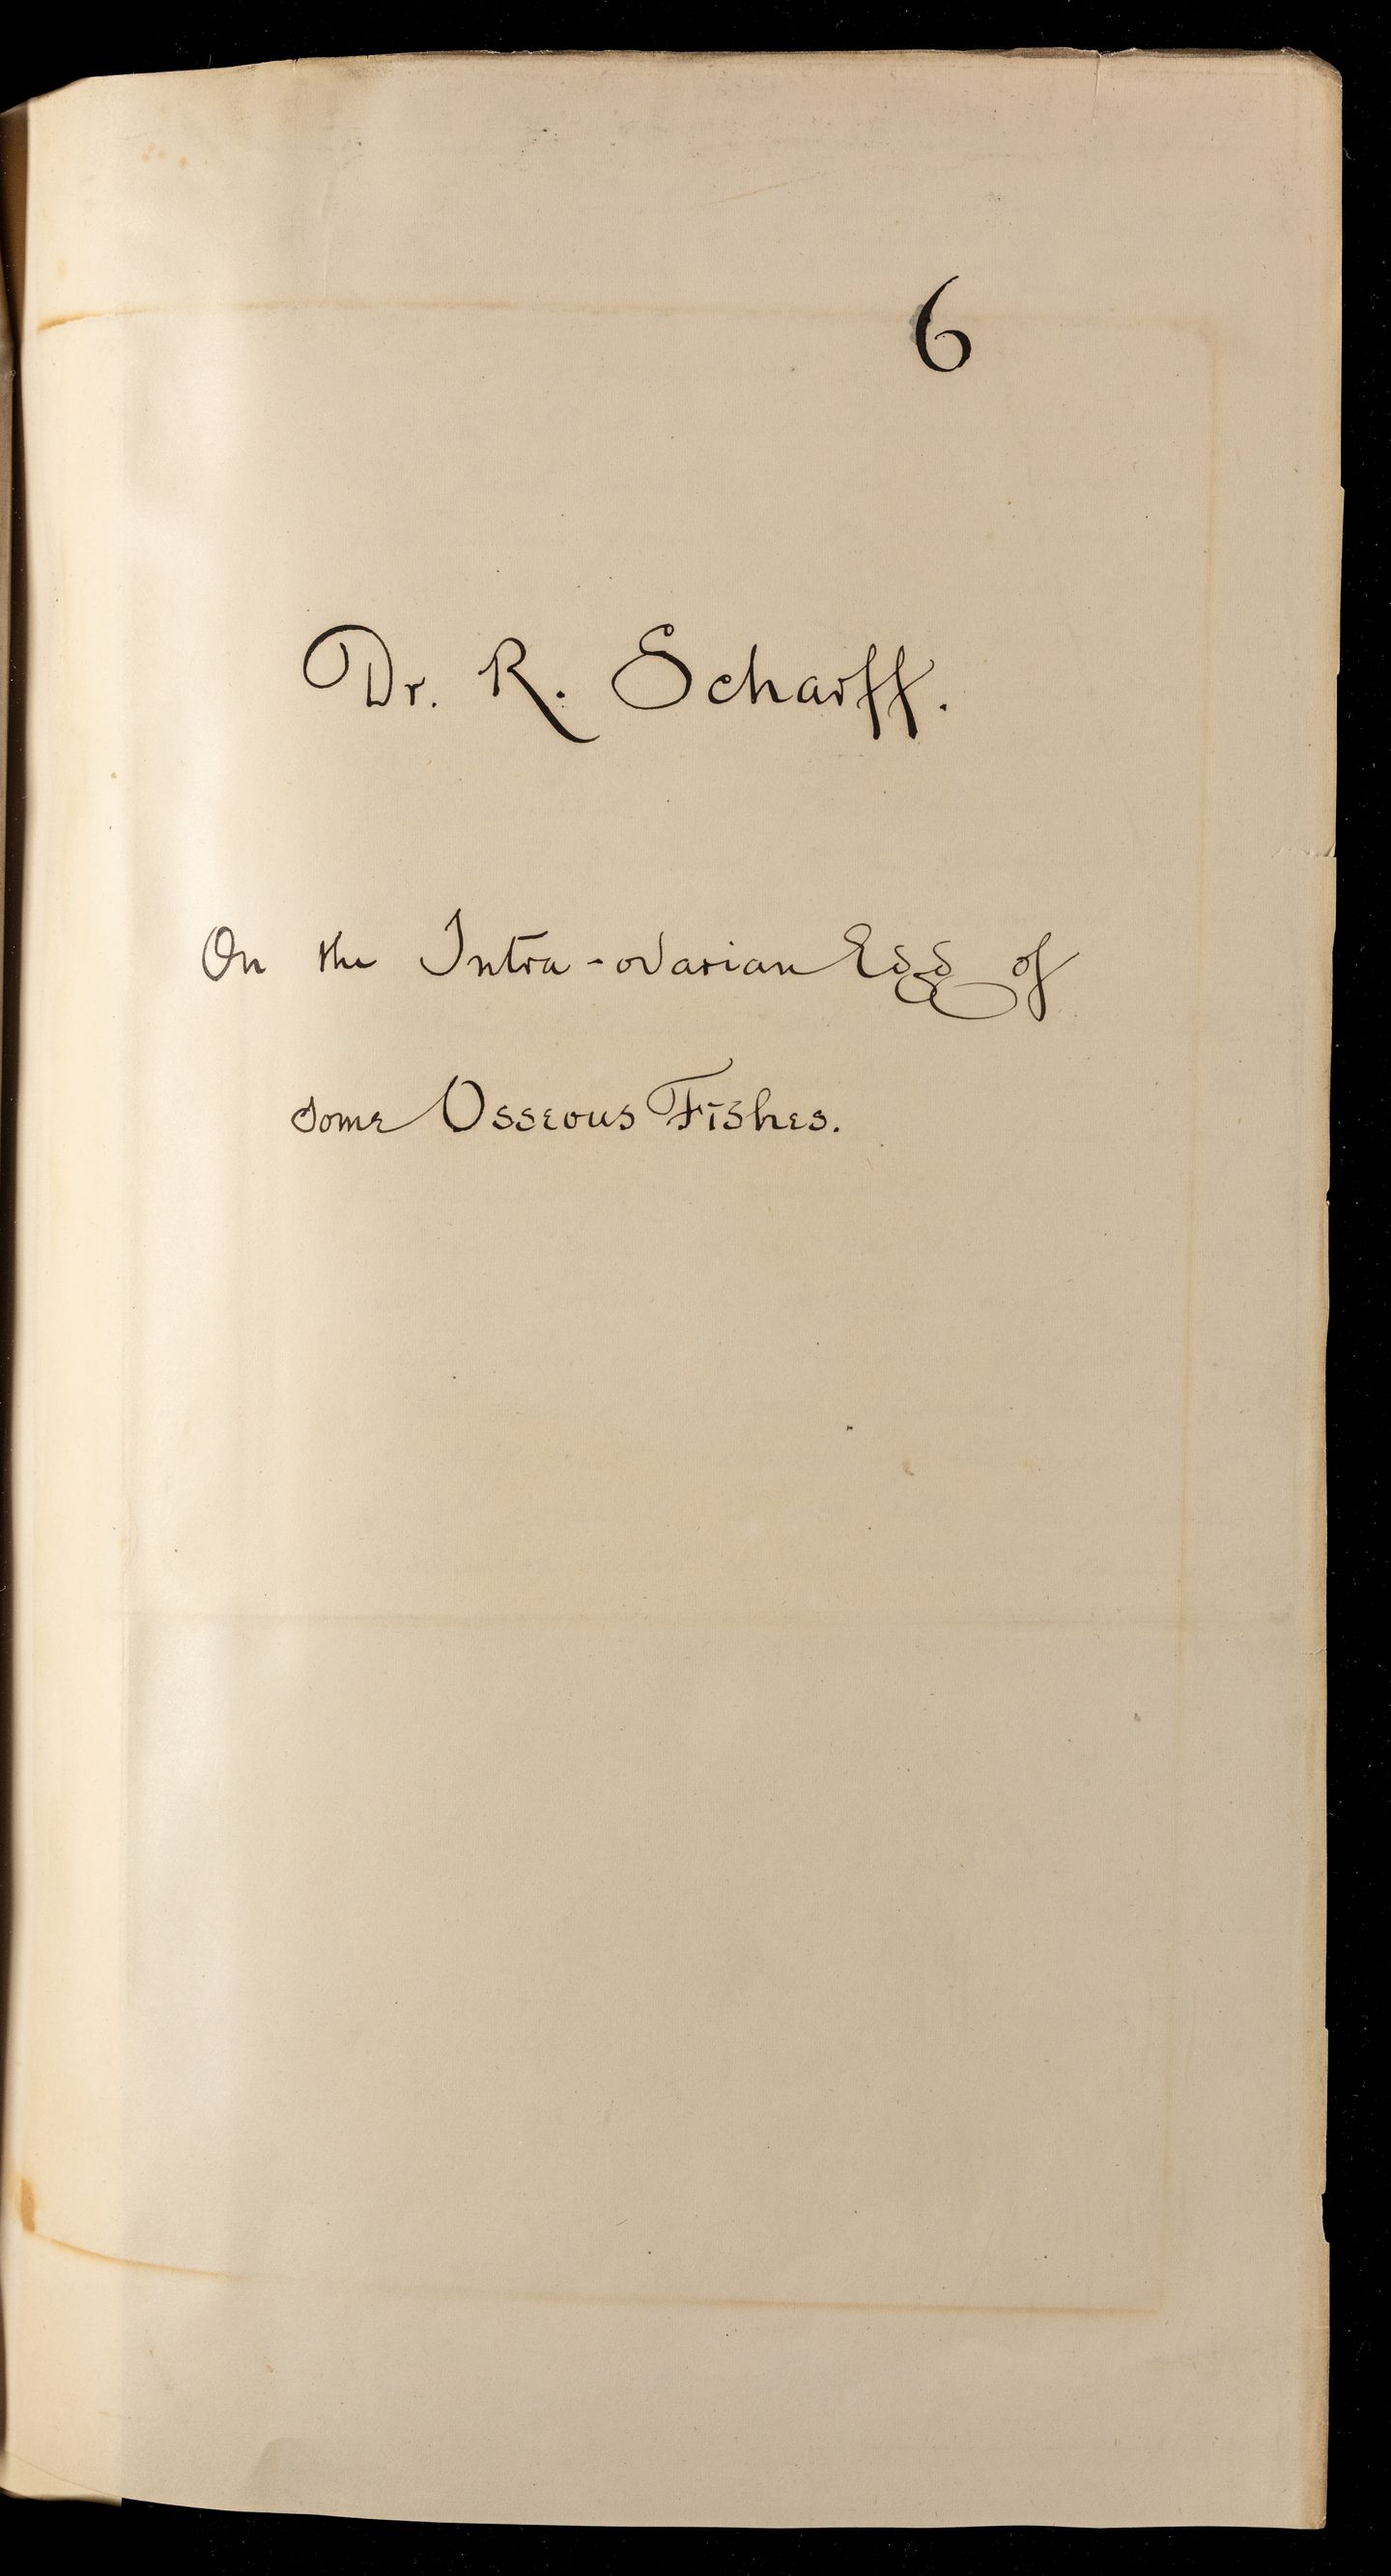 6
Dr. R. Scharff.
On the Intra-ovarian Egg of
some Osseous Fishes.